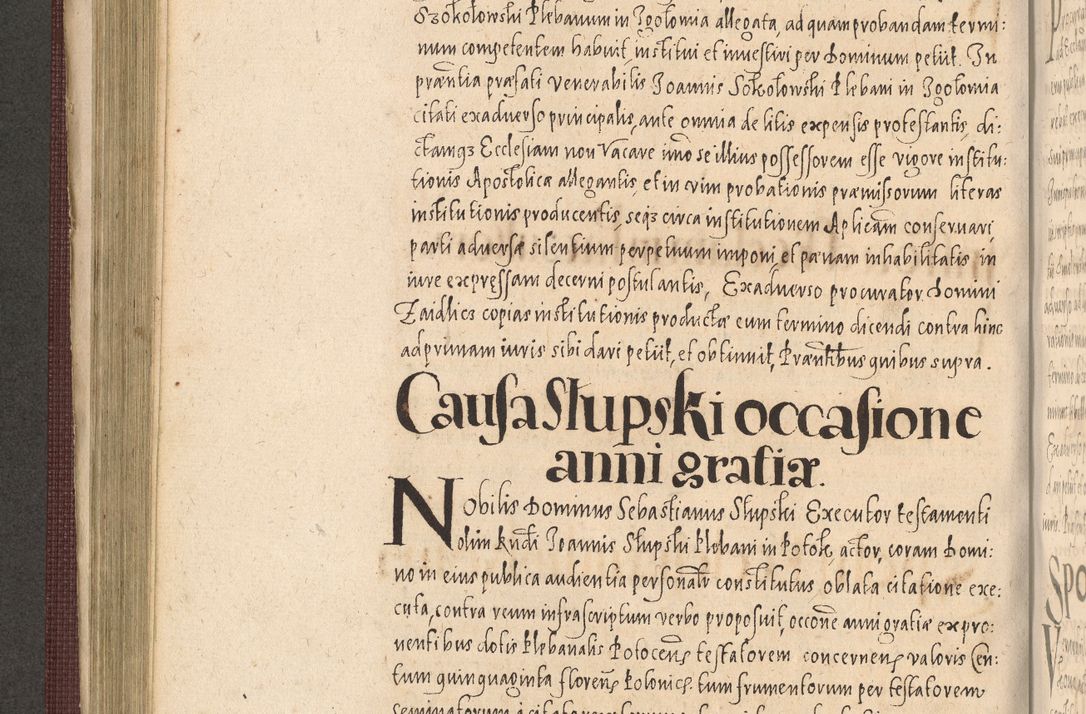 Szokołowski Plebanum in Igołomia allegata, ad quam probandam termi:
num competentem habuit, institui et inuestiri per Dominum petiit. In
præntia præfati venerabilis Joannis Sokołowski Plebani in Igołomia
citati ex aduerso principalis, ante omnia de litis expensis protestantis, di:
ctamqз Ecclesiam non vacare imo se illius possessorem esse vigore institu:
tionis Apostolicæ allegantis et in vim probationis præmissorum literas
institutionis producentis, seqз circa institutionem Aplicam conseruari,
parti aduersæ silentium perpetuum imponi, et pænam inhabilitatis in
iure expręssam decerni postulantis, Exaduerso procurator Domini
Zaidlicz copias institutionis productæ cum termino dicendi contra hinc
ad primam iuris sibi dari petiit, et obtinuit, Præntibus quibus supra.
Causa Słupski occasione
anni gratiæ.
Nobilis Dominus Sebastianus Słupski Executor testamenti
olim Rndi Joannis Słupski Plebani in Potok, actor, coram Domi:
no in eius publica audientia personalr constitutus oblata citatione exe:
cuta, contra reum infrascriptum verbo proposuit, occone anni gratiæ ex pro:
uentibus dotis Plebanalis Potocens testatorem concernens valoris Cen:
tum quinquaginta florens Polonics. tum frumentorum per testatorem
seminatorum